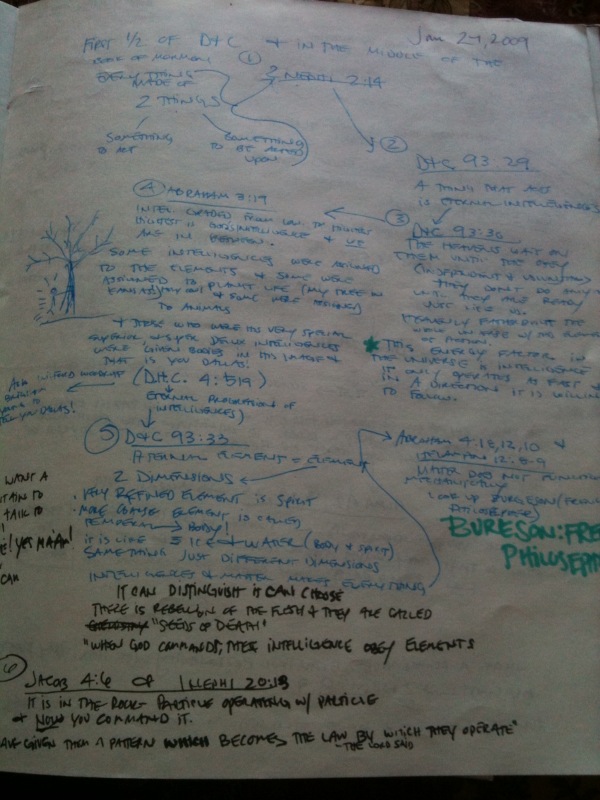 Jan 24, 2009
FIRST 1/2 OF D+C + IN THE MIDDLE OF THE
BOOK OF MORMON
① 2 NEPHI 2:14
EVERYTHING
MADE OF
2 THINGS
SOMETHING
TO ACT
SOMETHING
TO BE ACTED
UPON
②
D+C 93:29
A THING THAT ACTS
IS ETERNAL INTELLIGENCES
③
D+C 93:30
THE HEAVENS WAIT ON
THEM UNTIL THEY OBEY
(INDEPENDENT &
THEY DON'T DO
UNTIL THEY ARE READY
JUST LIKE US.
HEAVENLY FATHER
OF MOTION.
* THIS ENERGY FACTOR IN
THE UNIVERSE IS INTELLIGENCE
IT ONLY OPERATES AS FAST &
IN A DIRECTION IT IS WILLING
TO FOLLOW.
④ ABRAHAM 3:19
INTEL. GRADED FROM LOW TO HIGHER
HIGHEST IS GOD'S INTELLIGENCE & WE
ARE IN BETWEEN.
SOME INTELLIGENCES WERE ASSIGNED
TO THE ELEMENTS & SOME WERE
ASSIGNED TO PLANT LIFE (MY TREE IN
& SOME WERE ASSIGNED
TO ANIMALS
& THOSE WHO WERE HIS VERY SPECIAL
SUPERIOR INTELLIGENCES
WERE GIVEN BODIES IN HIS IMAGE &
THAT IS YOU DALLAS!
(D.H.C. 4:519)
ETERNAL PROGRESSION OF
INTELLIGENCES)
⑤ D+C 93:33
ETERNAL ELEMENT = ELEMENT
2 DIMENSIONS
· VERY REFINED ELEMENT IS SPIRIT
· MORE COARSE ELEMENT IS CALLED
TEMPORAL → BODY!
IT IS LIKE ICE & WATER (BODY & SPIRIT)
SAME THING JUST DIFFERENT DIMENSIONS
INTELLIGENCES & MATTER MAKES EVERYTHING
ABRAHAM 4:18, 12, 10 &
12:8-9
MATTER DOES NOT FUNCTION
MECHANICALLY
LOOK UP BURGESON (FRENCH
PHILOSOPHER)
BURESON: FRE
PHILOSOPH
WANT A
TAIN TO
TALK TO
! YES MA'AM!
CAN
IT CAN DISTINGUISH IT CAN CHOOSE
THERE IS REBELLION OF THE FLESH & THEY ARE CALLED
"SEEDS OF DEATH"
"WHEN GOD COMMANDS, THESE INTELLIGENCE OBEY ELEMENTS
⑥ JACOB 4:6 OF 1 NEPHI 20:13
IT IS IN THE ROCK PARTICLE OPERATING W/ PARTICLE
& NOW YOU COMMAND IT.
AVE GIVEN THEM A PATTERN WHICH BECOMES THE LAW BY WHICH THEY OPERATE"
- THE LORD SAID